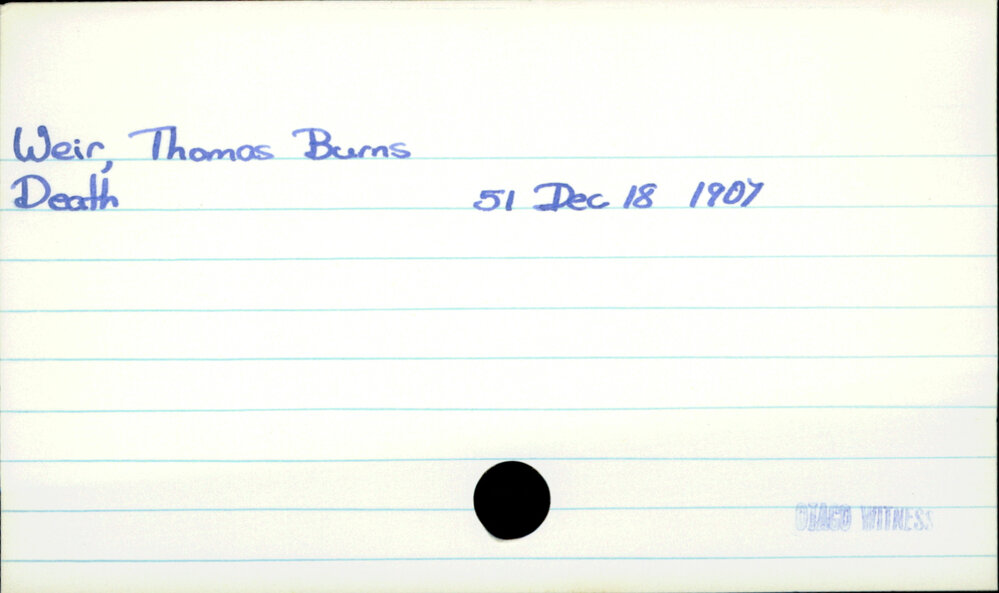 Weir, Thomas Burns
Death 51 Dec 18 1907
OTAGO WITNESS